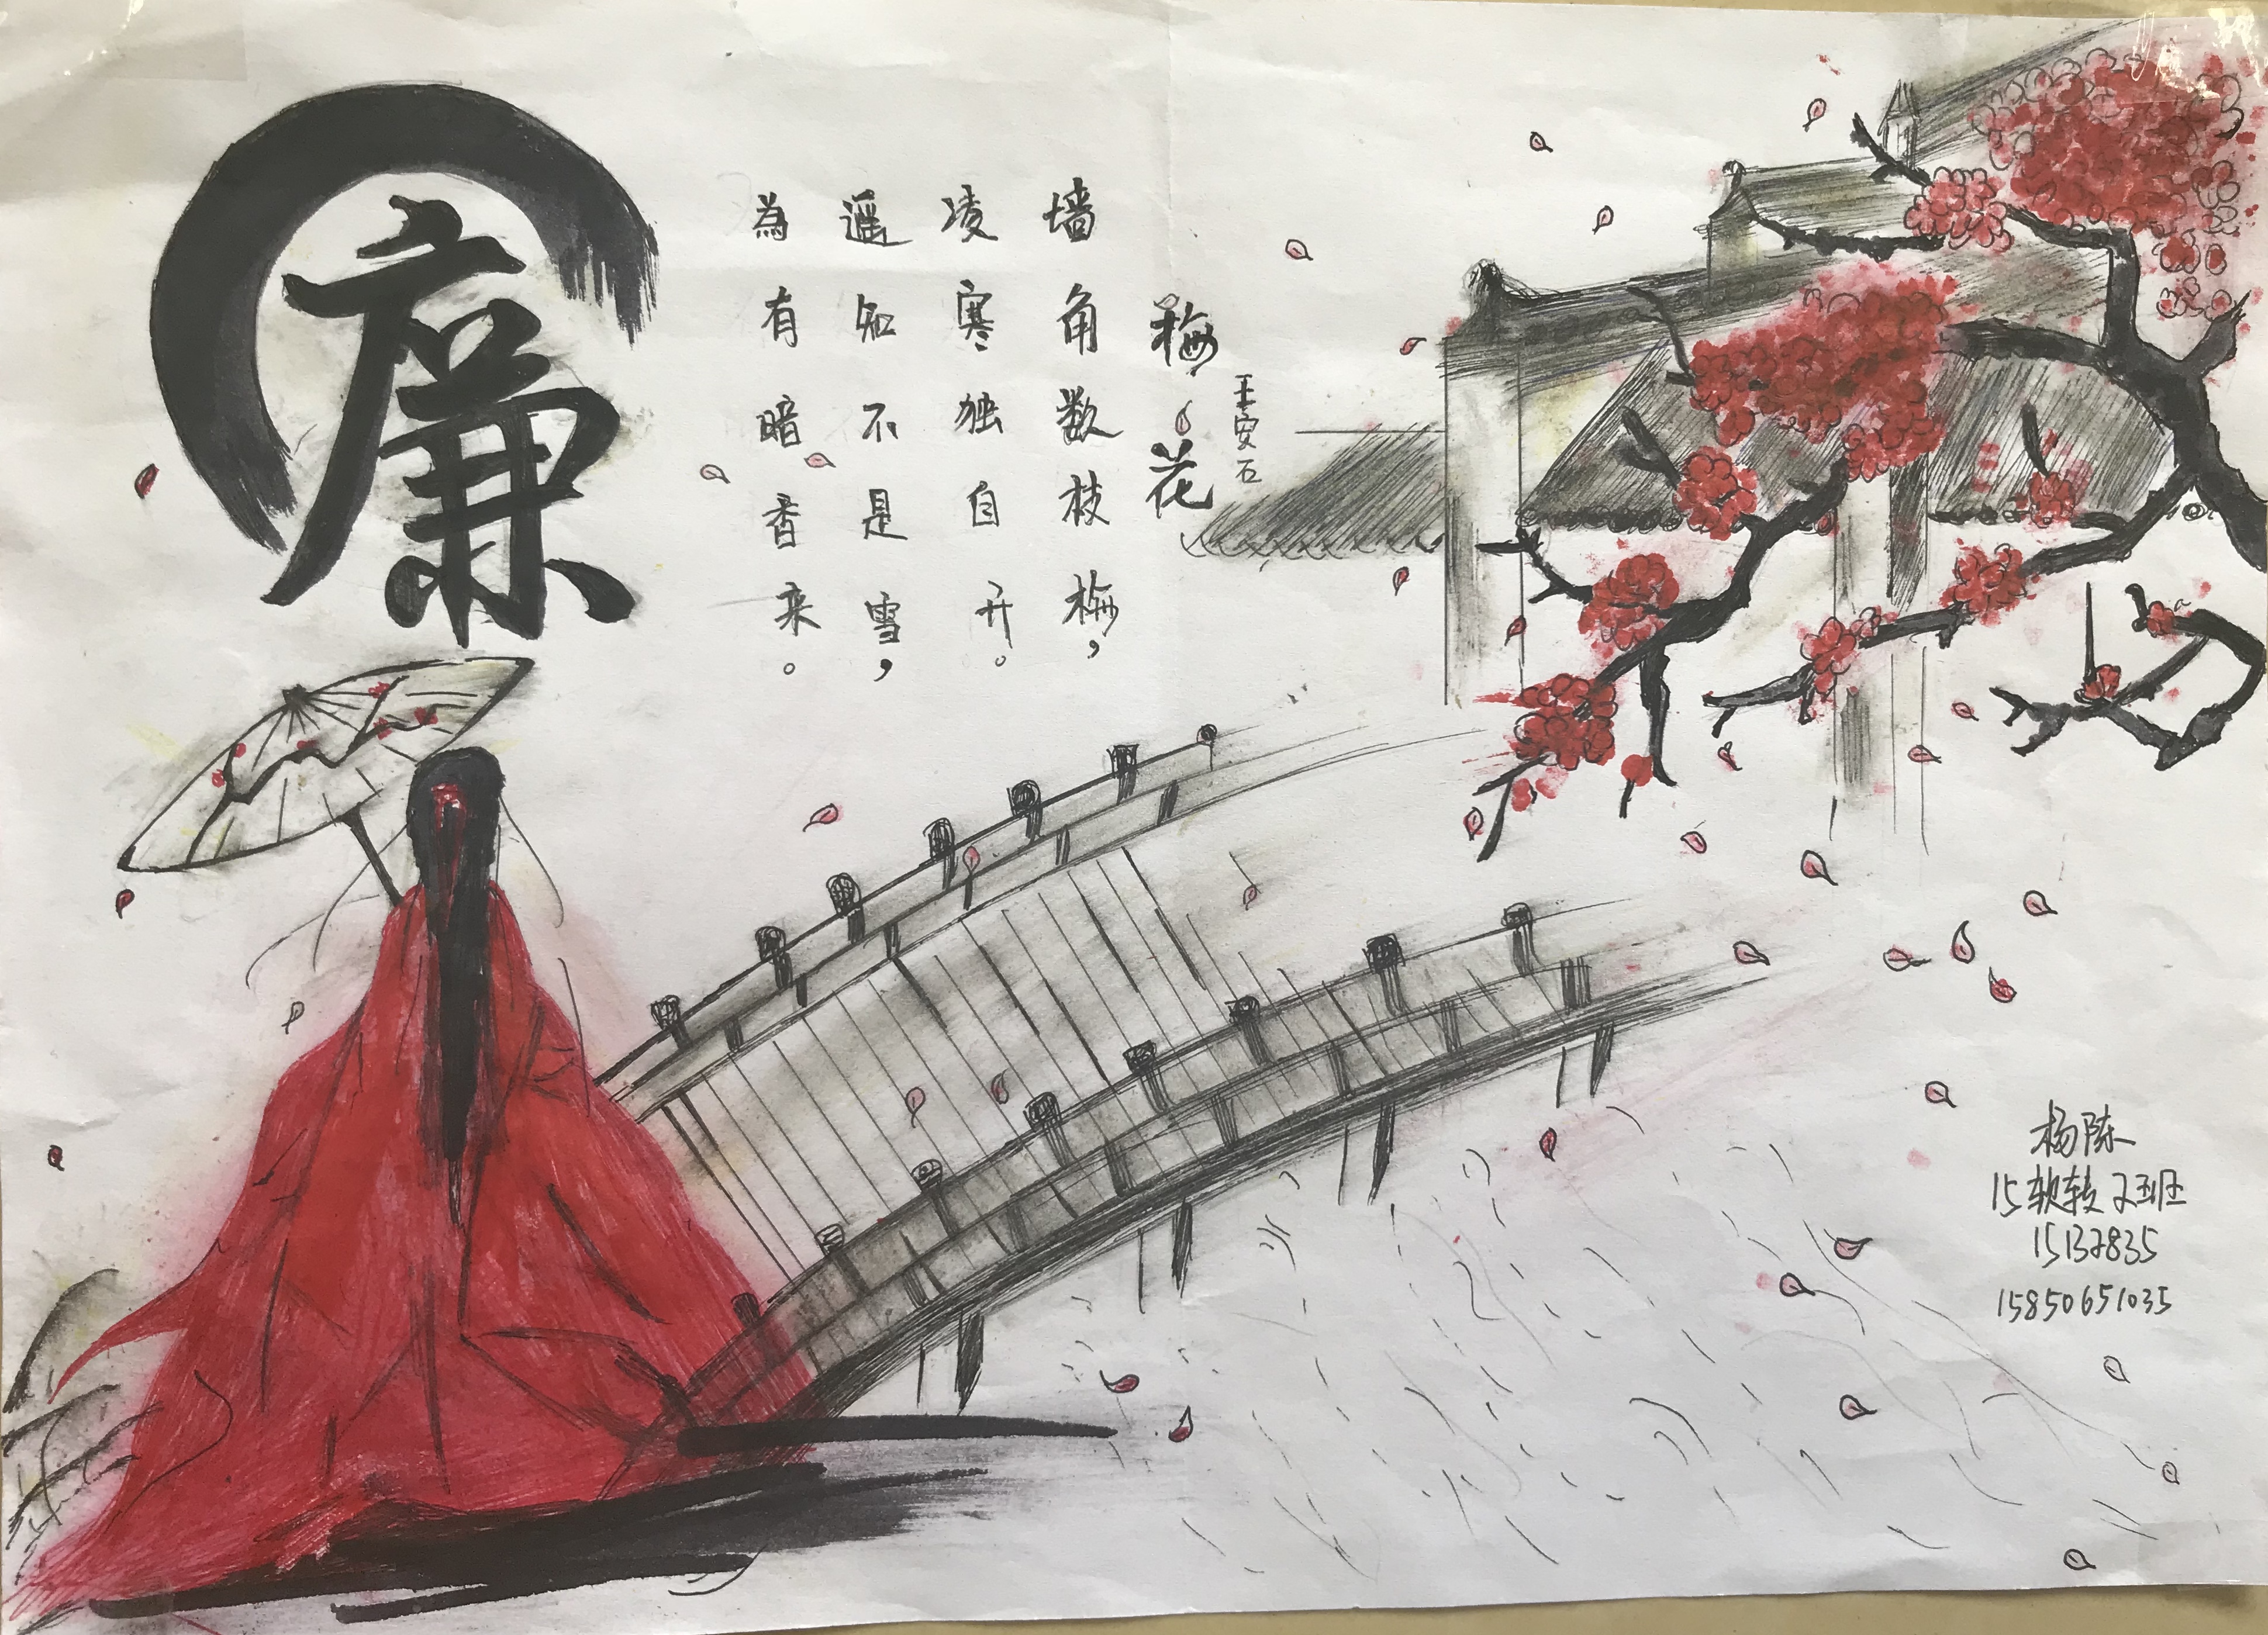 廉
梅花
王安石
墙角数枝梅，
凌寒独自开。
遥知不是雪，
為有暗香来。
杨陈
15软转2班
15132835
15850651035